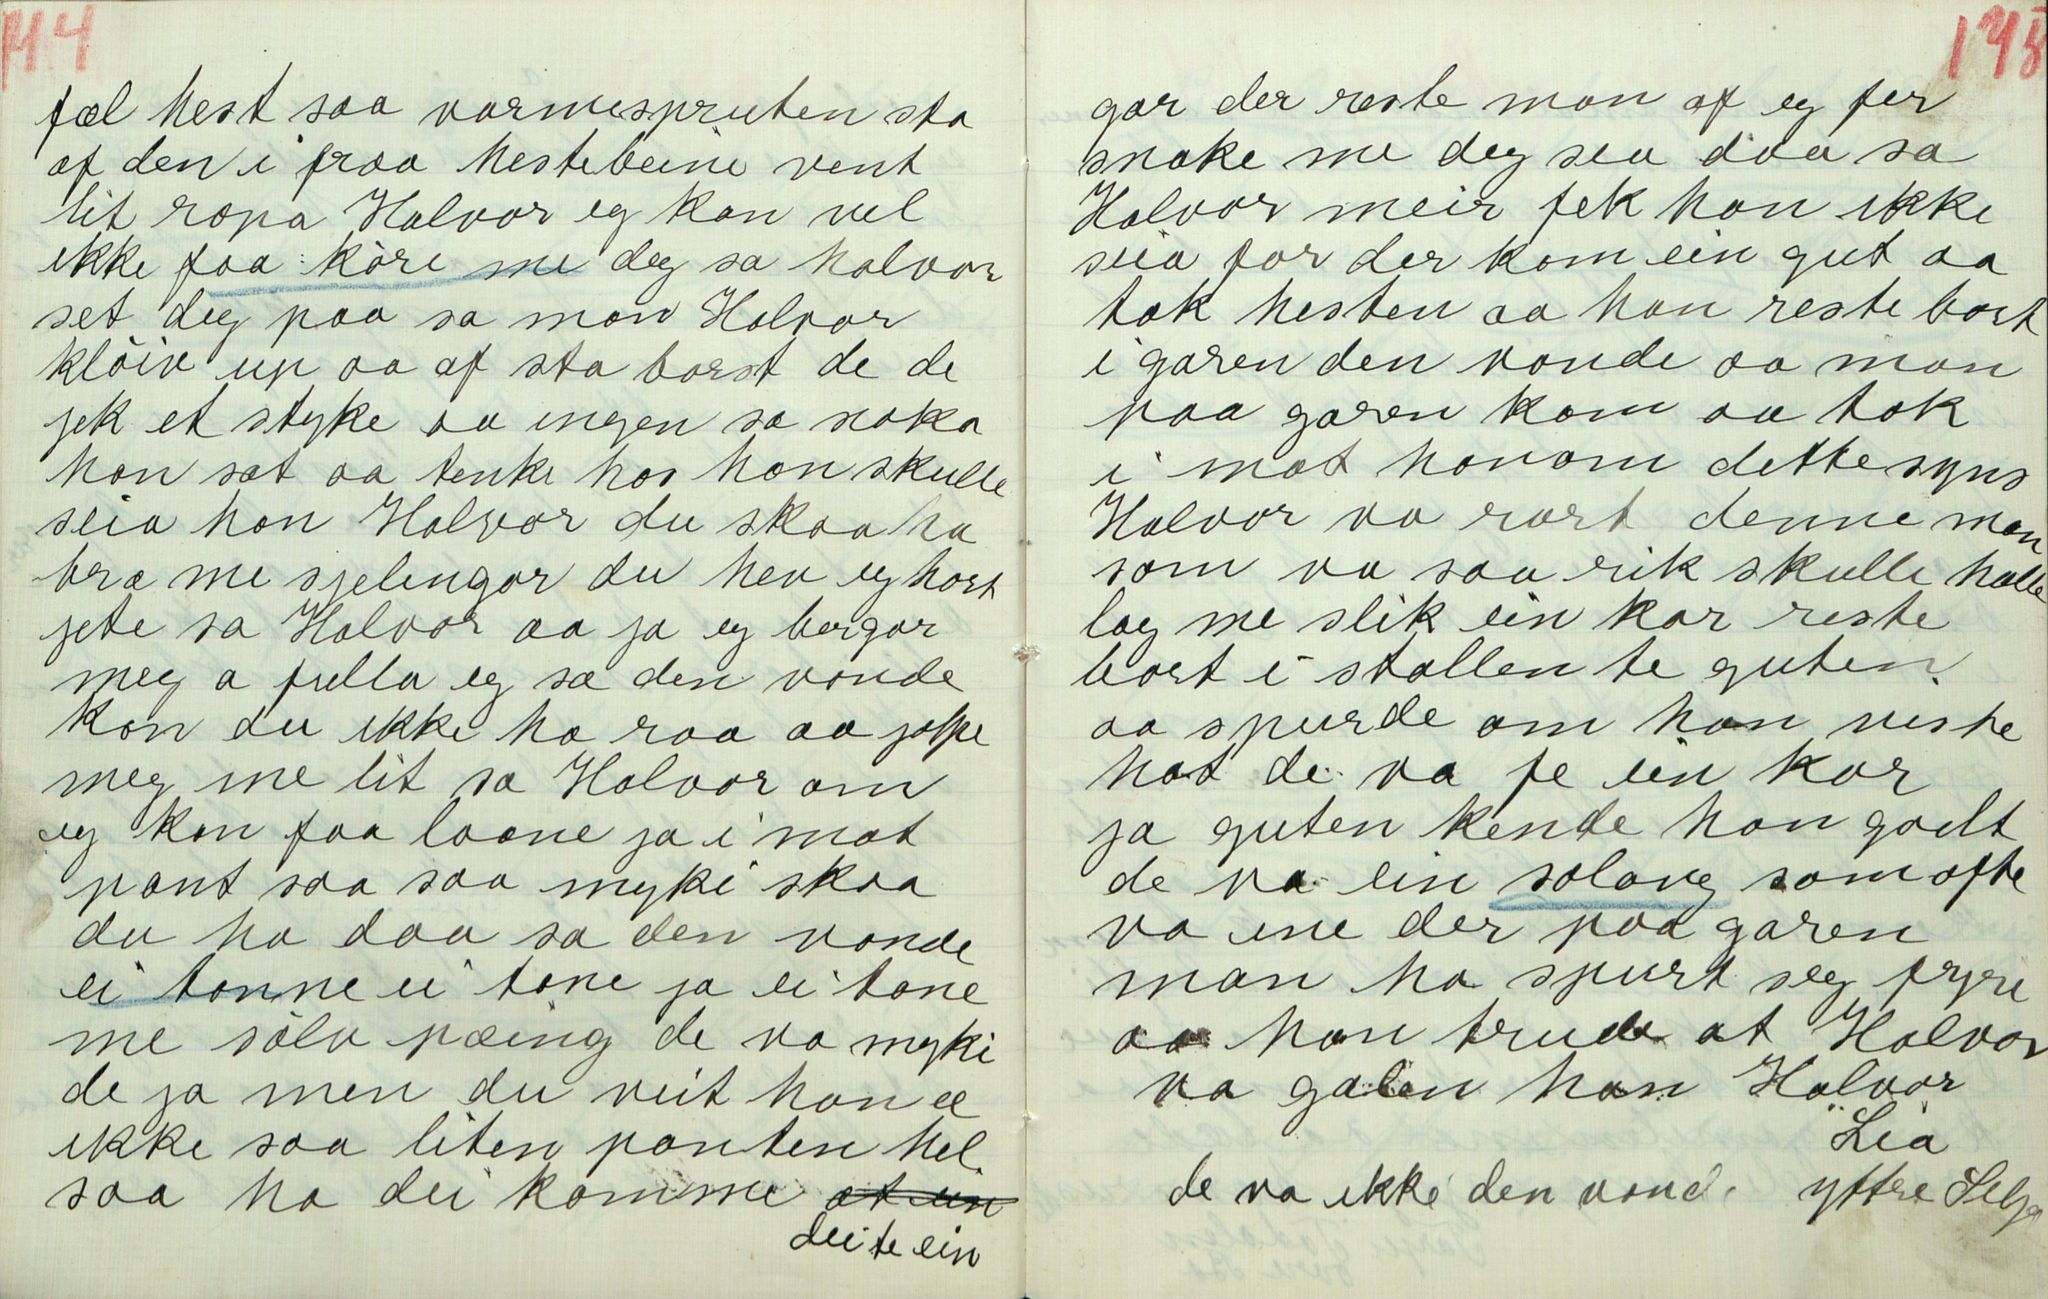 144
fæl hest saa varmespruten sta
af den i fraa hestebeine vent
lit ropa Halvor eg kan vel
ikke faa köre me deg sa halvor
set deg paa sa man Halvor
klöiv up aa af sta barst de de
jek et styke aa ingen sa noka
han sat aa tenke hos han skulle
seia han Halvor du skaa ha
bra me sjelingar du hev eg hört
jete sa Halvor aa ja eg bergar
meg a fulla eg sa den vonde
kan du ikke ha raa aa jolpe
meg me lit sa Halvor om
eg kan faa laane ja i mot
pant saa saa myke skaa
du ha daa sa den vonde
ei tonne ei tone ja ei tone
me sölv pæing de va myki
de ja men du veit han æ
ikke saa liten panten hel.
saa ha dei komme at en
dei te ein
145
gar der reste man af eg fer
snake me deg sea daa sa
Halvor meir fek han ikke
seia for der kom ein gut aa
tok hesten aa han reste bort
i garen den vonde aa man
paa garen kom aa tok
i mot honom dette syns
Halvor va rart denne man
som va saa rik skulle halle
lag me slik ein kar reste
bort i stallen te guten.
aa spurde om han viste
hot de va fe ein kar
ja guten kende han godt
de va ein solong som ofte
va ine der paa garen
man ha spurt seg fyre
aa han trude at Halvor
va galen han Halvor
Lia
de va ikke den vond. yttre Selja